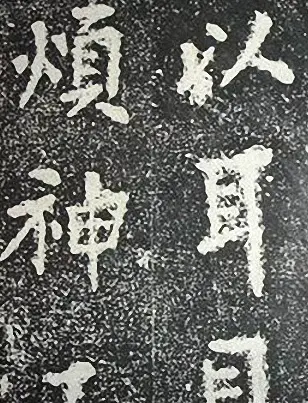 以耳目
煩神